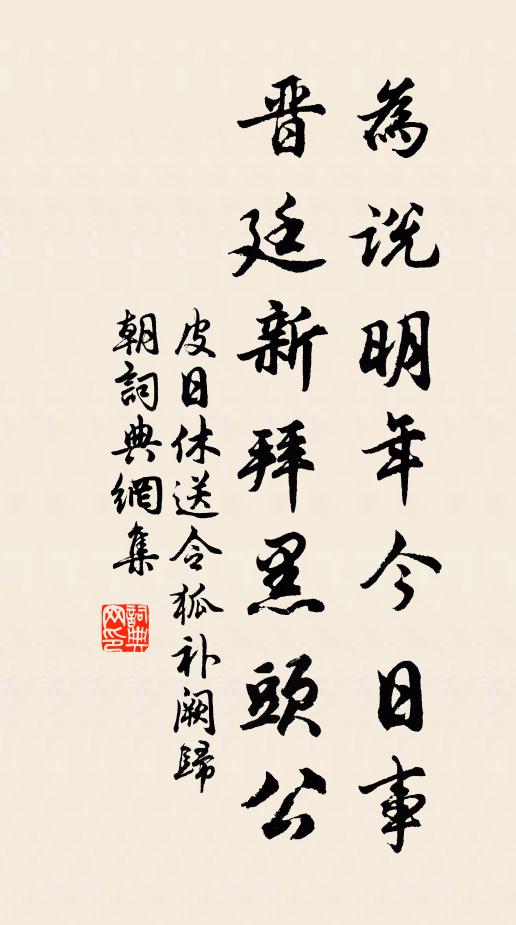 為説明年今日事
晋廷新拜黑頭公
皮日休送令狐补阙歸
朝詞典網集
詞典
网印